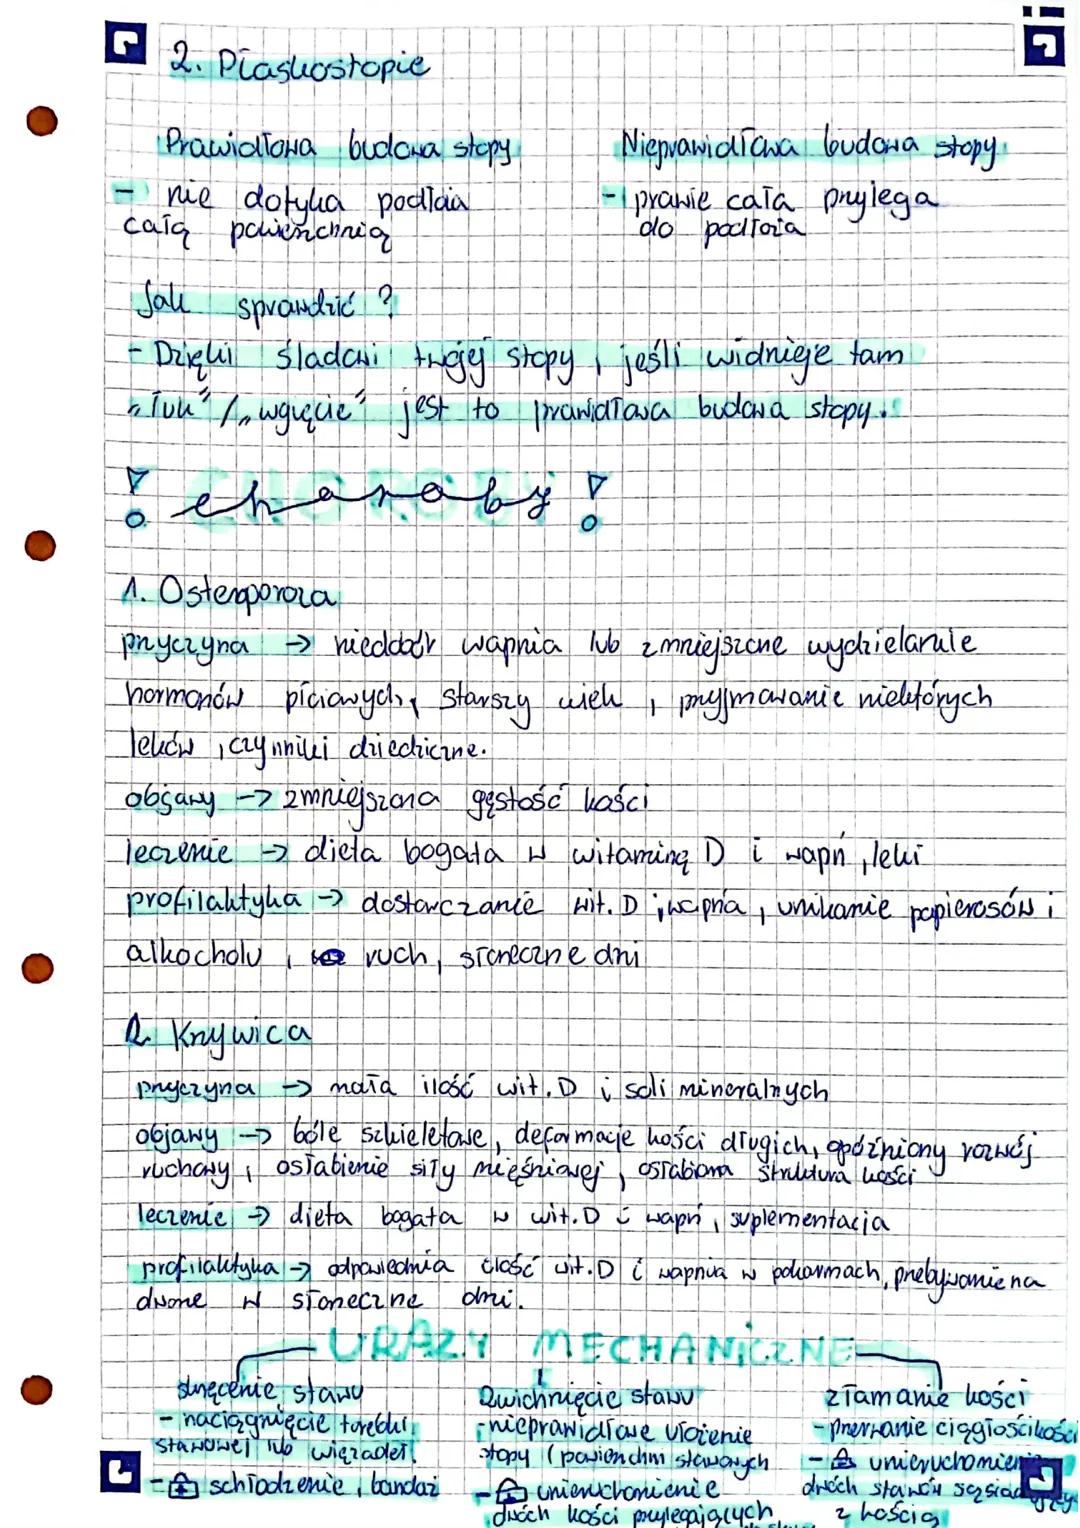 2. Płaskostopie
Prawidłowa budowa stopy
- nie dotyka podłoża
całą powierzchnią
Nieprawidłowa budowa stopy
- prawie cała przylega
do podłoża
Jak sprawdzić?
- Dzięki śladowi twojej stopy, jeśli widnieje tam
"łuk" / "wgięcie" jest to prawidłowa budowa stopy.
! choroby !
1. Osteoporoza
przyczyna → niedobór wapnia lub zmniejszone wydzielanie
hormonów płciowych, starszy wiek, przyjmowanie niektórych
leków, czynniki dziedziczne.
objawy → zmniejszona gęstość kości
leczenie → dieta bogata w witaminę D i wapń, leki
profilaktyka → dostarczanie wit. D i wapnia, unikanie papierosów i
alkocholu, ruch, słoneczne dni
2. Krzywica
przyczyna → mała ilość wit. D i soli mineralnych
objawy → bóle szkieletowe, deformacje kości długich, opóźniony rozwój
ruchowy, osłabienie siły mięśniowej, osłabiona struktura kości
leczenie → dieta bogata w wit. D i wapń, suplementacja
profilaktyka → odpowiednia ilość wit. D i wapnia w pokarmach, przebywanie na
dworze w słoneczne dni.
URAZY MECHANICZNE
skręcenie stawu
- naciągnięcie torebki
stawowej lub więzadeł
- schłodzenie, bandaż
Zwichnięcie stawu
- nieprawidłowe ułożenie
stopy (powierzchni stawowych
- unieruchomienie
dwóch kości przylegających
złamanie kości
- przerwanie ciągłości kości
- unieruchomienie
dwóch stawów
z kością